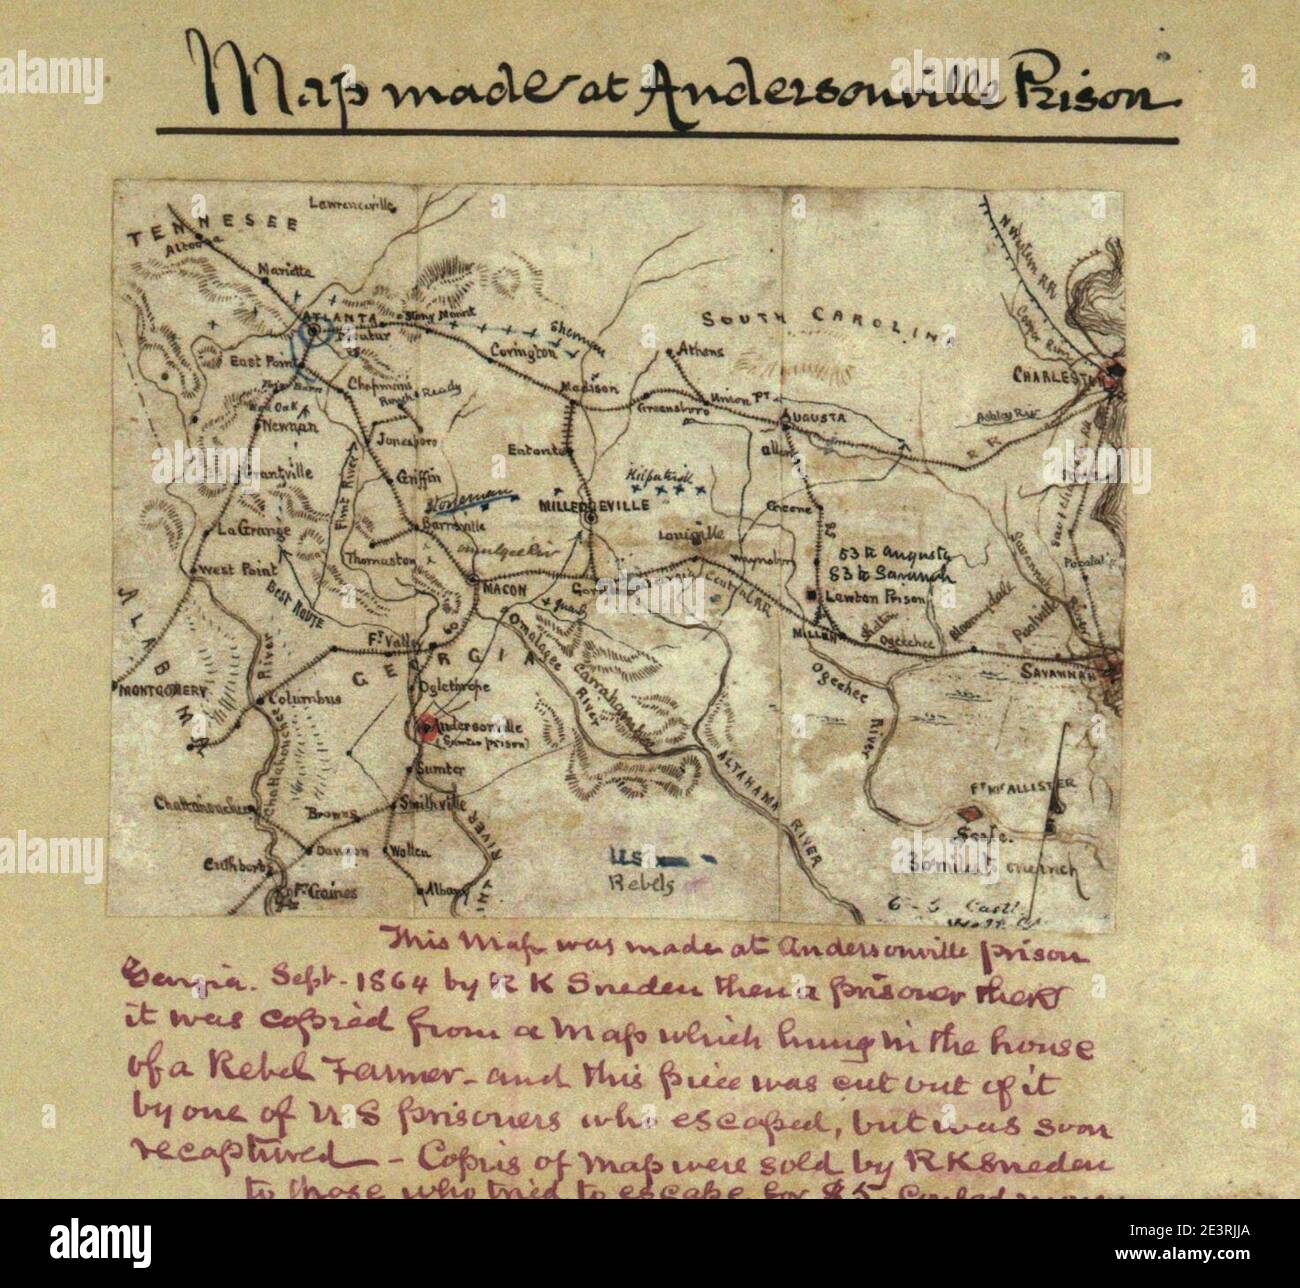 Map made at Andersonville Prison
Lawrenceville
TENNESEE
Altoona
Marietta
N. Western RR
ATLANTA
Stony Mount
Sherman
SOUTH CAROLINA
Decatur
Cooper River
East Point
Covington
Athens
CHARLESTON
Chapmans
Madison
Rough & Ready
Union Pt.
Greensboro
AUGUSTA
Ashley Riv
Red Oak
Newnan
Jonesboro
RR
Eatonton
Grantville
Flint River
Griffin
Kilpatrick
Stoneman
MILLEDGEVILLE
Greene
La Grange
Barnsville
Louisville
Thomaston
53 to Augusta
West Point
83 to Savannah
MACON
Gordon
Central RR
Lawton Prison
ALABMA
Best ROUTE
MILLEN
Ogeechee
Savannah River
Ft Valley
60
GEORGIA
Omulgee River
SAVANNAH
MONTGOMERY
River
Columbus
Oglethrope
Ogeechee River
Andersonville
(Sumter prison)
Sumter
ALTAHAMA RIVER
Ft McALLISTER
Chattahoochee
Browns
Smithville
RIVER
Scale.
Dawson
U.S.
Rebels
Cuthberty
Ft Gaines
Albany
30 miles to one inch
This Map was made at Andersonville prison
Georgia. Sept. 1864 by R K Sneden then a prisoner there
it was copied from a Map which hung in the house
of a Rebel Farmer - and this piece was cut out of it
by one of U S prisoners who escaped, but was soon
recaptured - Copies of Map were sold by R K Sneden
to those who tried to escape for $5.
alamy
alamy
alamy
Image ID: 2E3RJJA
www.alamy.com